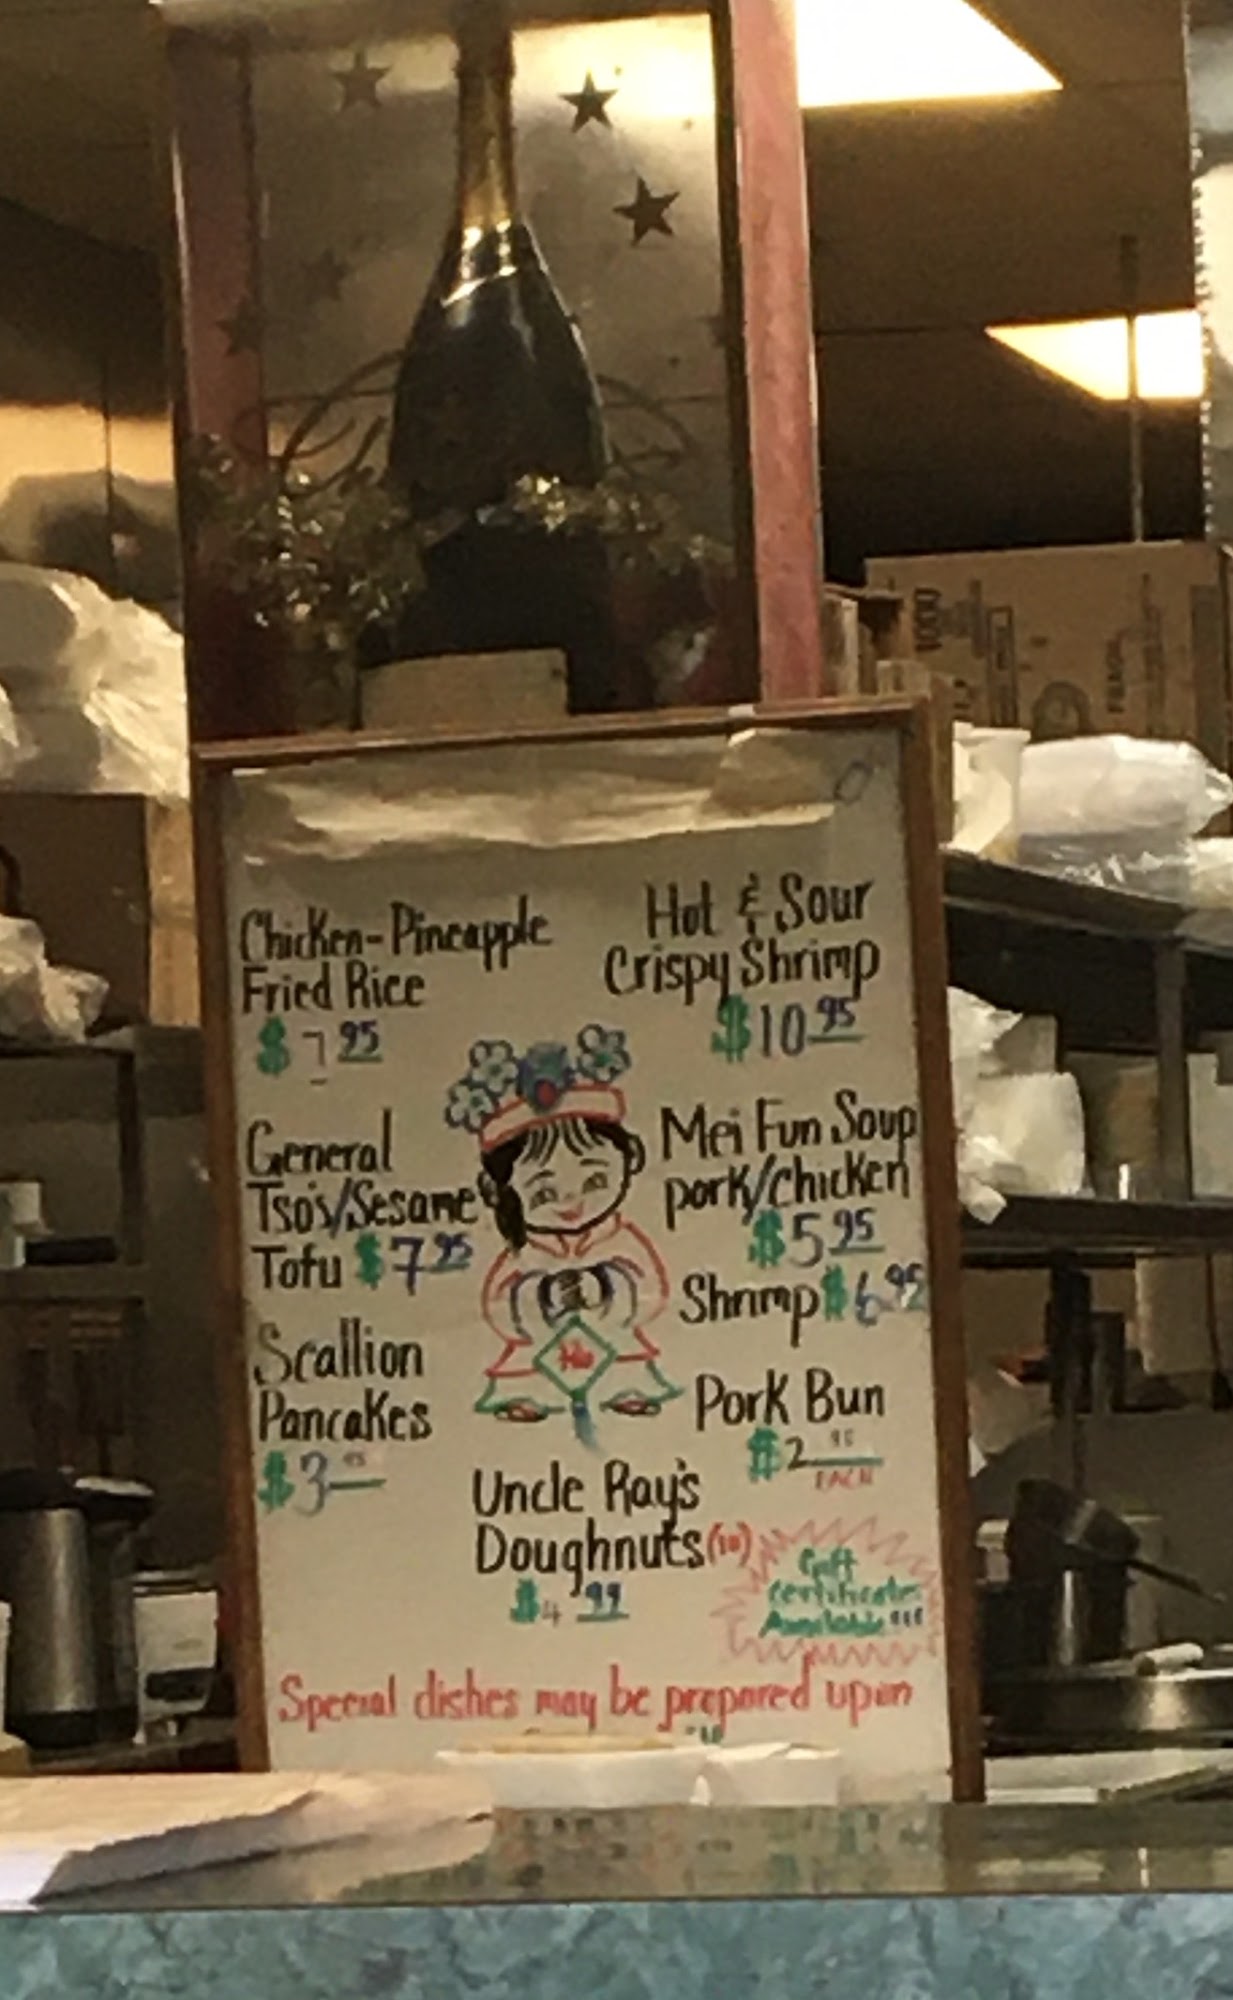 Chicken-Pineapple
Fried Rice
$7.95
General
Tso's/Sesame
Tofu $7.95
Scallion
Pancakes
$3.95
Hot & Sour
Crispy Shrimp
$10.95
Mei Fun Soup
pork/chicken
$5.95
Shrimp $6.95
Pork Bun
$2.95
EACH
Uncle Ray's
Doughnuts (10)
$4.99
Gift
Certificates
Available!!!
Special dishes may be prepared upon
1000